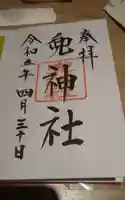 奉拝
兜神社
令和五年四月三十日